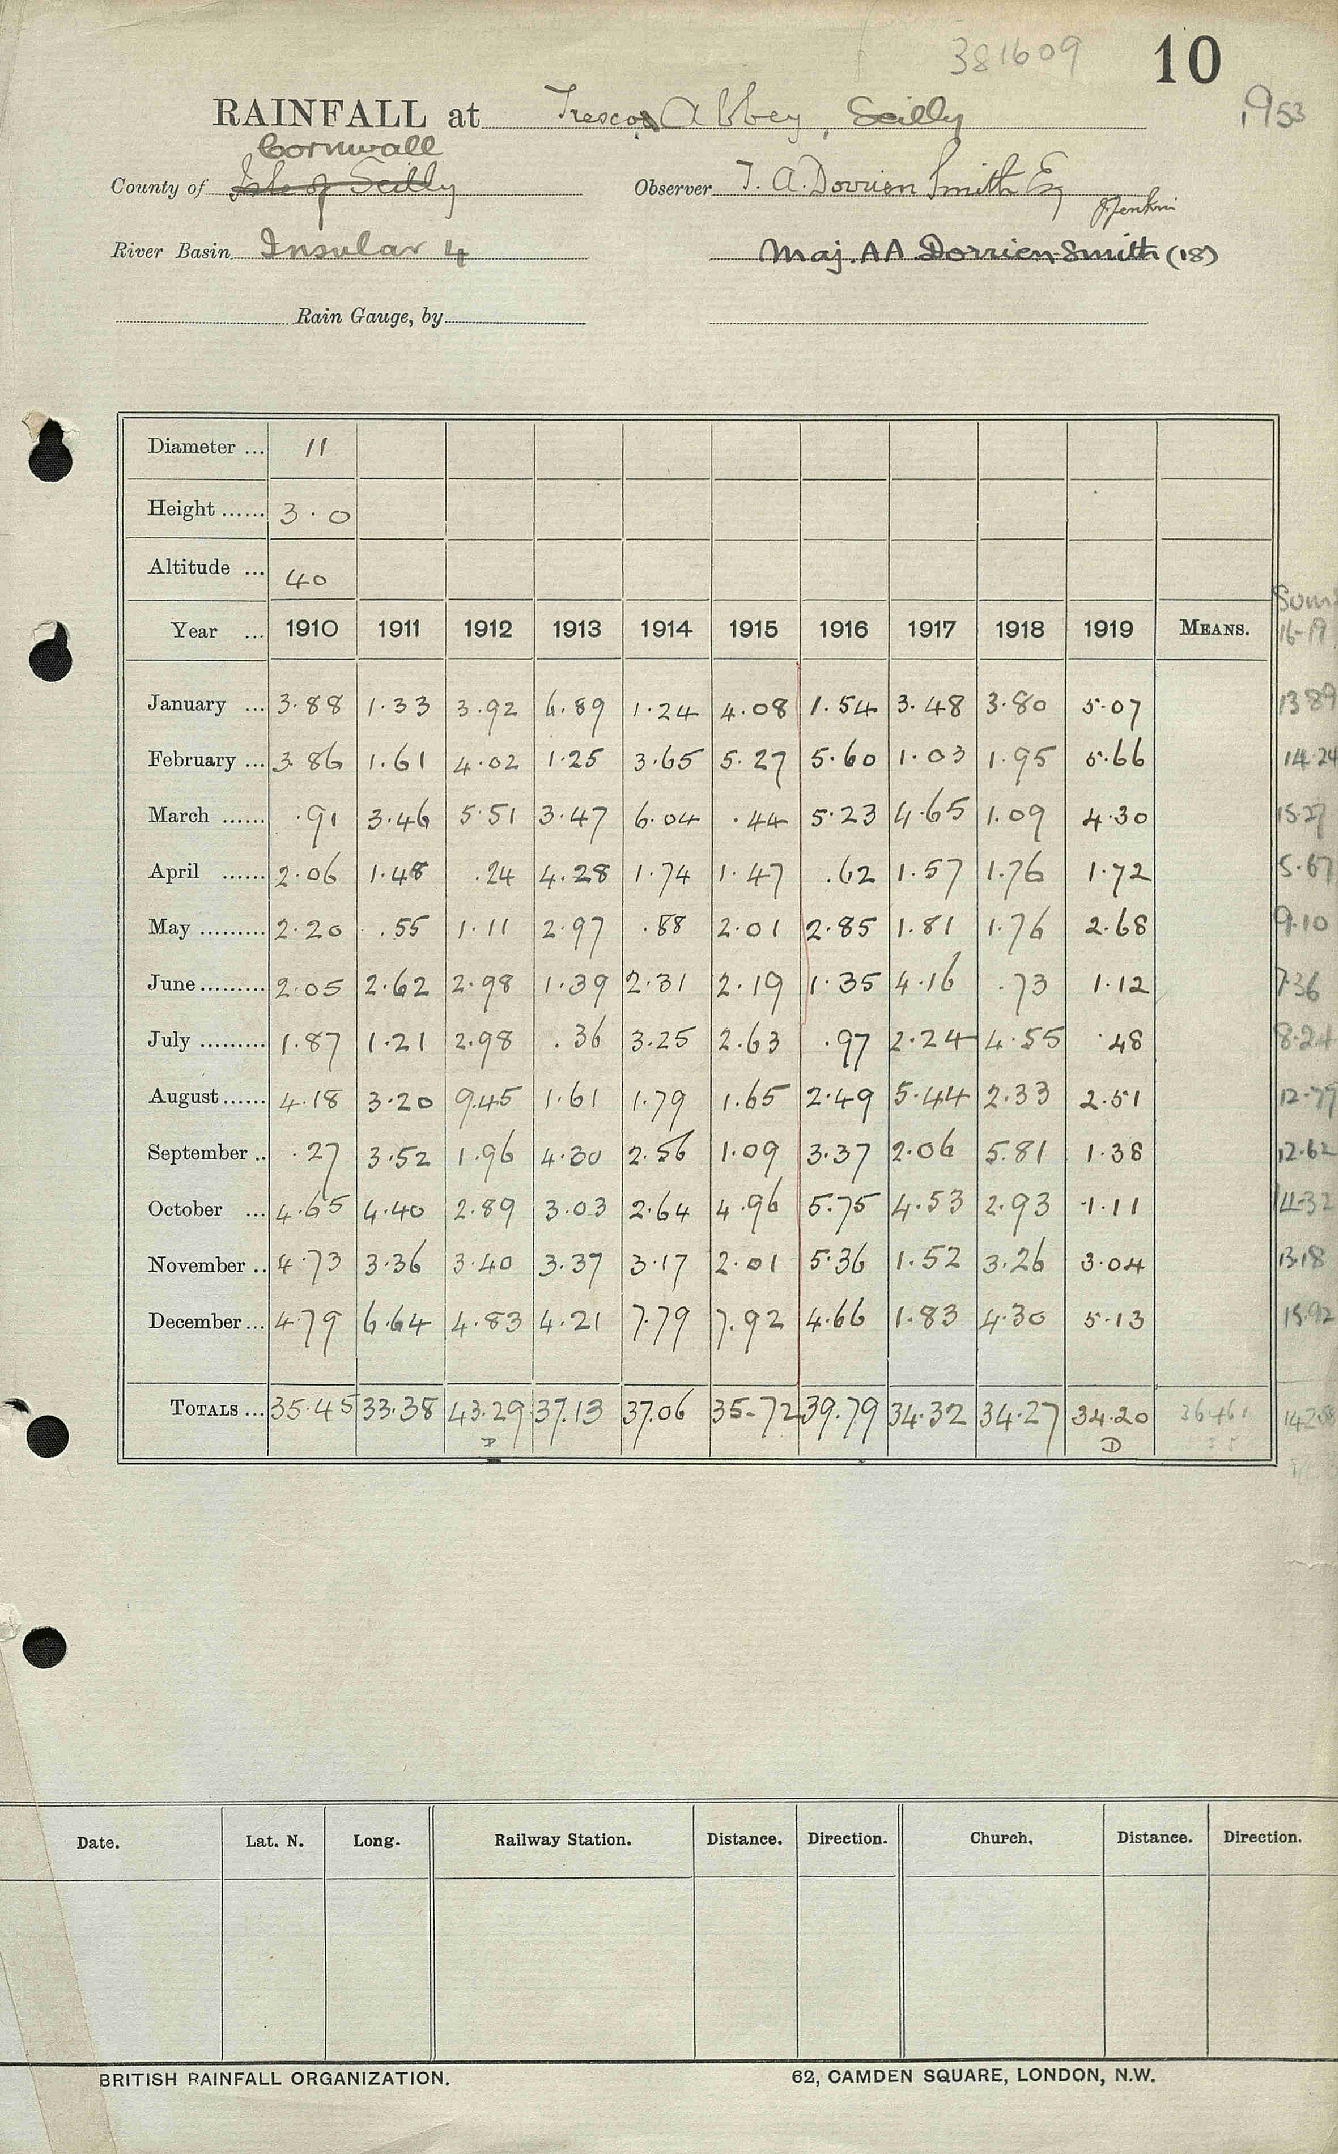 381609 10
RAINFALL at Tresco Abbey, Scilly 1953
Cornwall
County of Isle of Scilly Observer T. A. Dorrien Smith Esq
J Jenkin
River Basin Insular 4 Maj. AA Dorrien-Smith (18)
Rain Gauge, by
Diameter ... 11
Height ...... 3.0
Altitude ... 40
Sum
Year ... 1910 1911 1912 1913 1914 1915 1916 1917 1918 1919 MEANS. 16-19
January ... 3.88 1.33 3.92 6.89 1.24 4.08 1.54 3.48 3.80 5.07 13 89
February ... 3.86 1.61 4.02 1.25 3.65 5.27 5.60 1.03 1.95 5.66 14.24
March ...... .91 3.46 5.51 3.47 6.04 .44 5.23 4.65 1.09 4.30 15.27
April ...... 2.06 1.48 .24 4.28 1.74 1.47 .62 1.57 1.76 1.72 5.67
May ......... 2.20 .55 1.11 2.97 .88 2.01 2.85 1.81 1.76 2.68 9.10
June ......... 2.05 2.62 2.98 1.39 2.31 2.19 1.35 4.16 .73 1.12 7.36
July ......... 1.87 1.21 2.98 .36 3.25 2.63 .97 2.24 4.55 .48 8.24
August ...... 4.18 3.20 9.45 1.61 1.79 1.65 2.49 5.44 2.33 2.51 12.77
September .. .27 3.52 1.96 4.30 2.56 1.09 3.37 2.06 5.81 1.38 12.62
October ... 4.65 4.40 2.89 3.03 2.64 4.96 5.75 4.53 2.93 1.11 14.32
November .. 4.73 3.36 3.40 3.37 3.17 2.01 5.36 1.52 3.26 3.04 13.18
December ... 4.79 6.64 4.83 4.21 7.79 7.92 4.66 1.83 4.30 5.13 15.92
TOTALS ... 35.45 33.38 43.29 37.13 37.06 35.72 39.79 34.32 34.27 34.20 36461
D D
Date. Lat. N. Long. Railway Station. Distance. Direction. Church. Distance. Direction.
BRITISH RAINFALL ORGANIZATION. 62, CAMDEN SQUARE, LONDON, N.W.